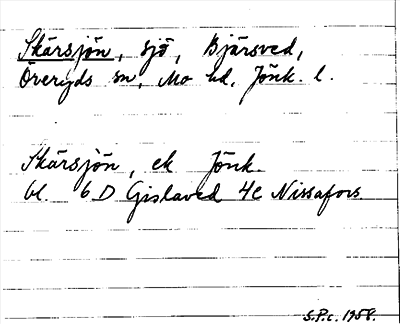 Skärsjön, sjö, Bjärsved,
Överyds sn, Mo hd, Jönk. l.
Skärsjön, ek Jönk.
bl. 6 D Gislaved 4e Nissafors
S.P.c. 1958.